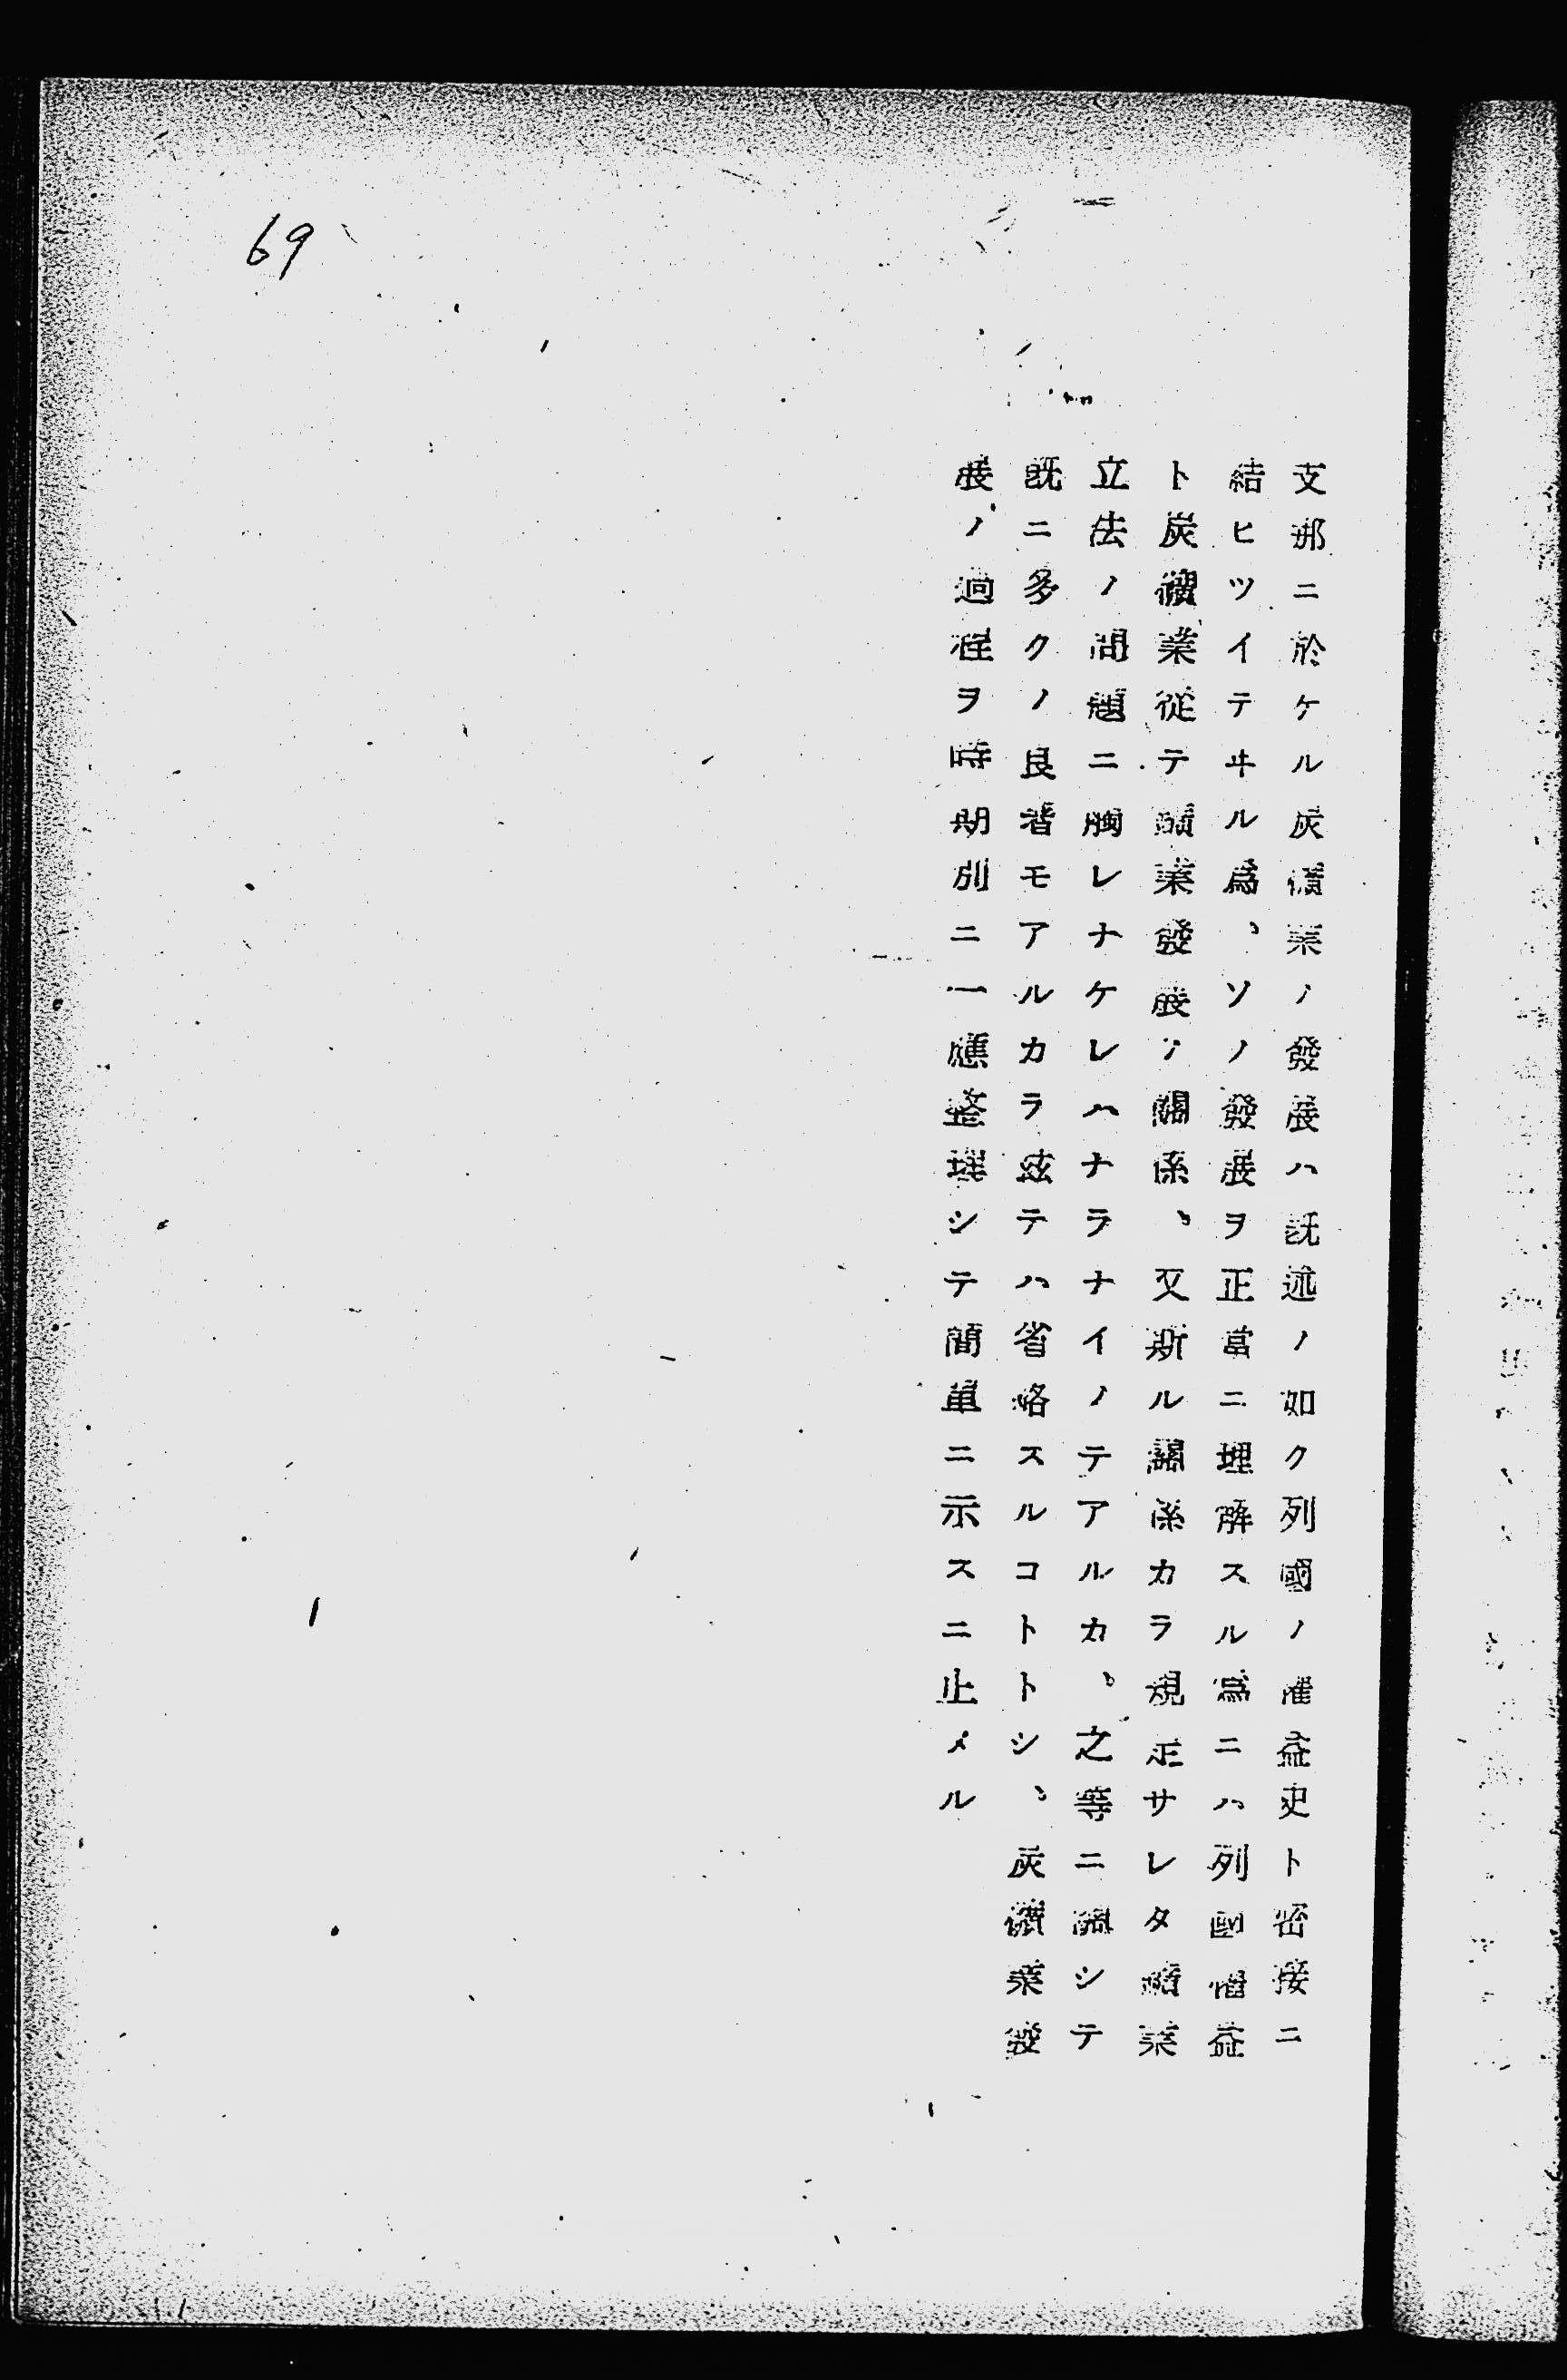 69
支那ニ於ケル炭礦業ノ發展ハ既述ノ如ク列國ノ權益史ト密接ニ
結ヒツイテヰル爲、ソノ發展ヲ正當ニ理解スル爲ニハ列國權益
ト炭礦業從テ礦業發展ノ關係、又斯ル關係カラ規定サレタ礦業
立法ノ問題ニ觸レナケレハナラナイノテアルカ、之等ニ關シテ
既ニ多クノ良著モアルカラ玆テハ省略スルコトトシ、炭礦業發
展ノ過程ヲ時期別ニ一應整理シテ簡單ニ示スニ止メル